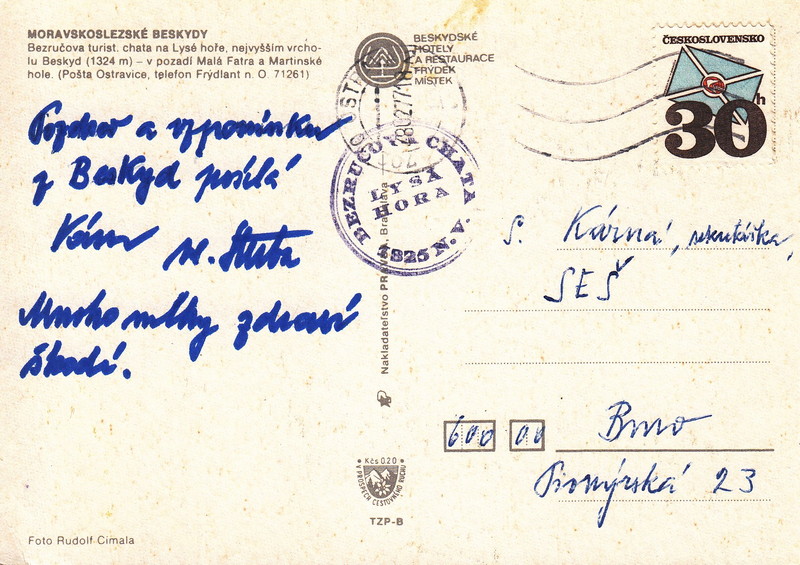 MORAVSKOSLEZSKÉ BESKYDY
Bezručova turist. chata na Lysé hoře, nejvyšším vrcho-
lu Beskyd (1324 m) – v pozadí Malá Fatra a Martinské
hole. (Pošta Ostravice, telefon Frýdlant n. O. 71261)
BESKYDSKÉ
HOTELY
A RESTAURACE
FRÝDEK
MÍSTEK
ČESKOSLOVENSKO
30h
BEZRUČOVA CHATA
LYSÁ
HORA
1325 N.V.
Pozdrav a vzpomínku
z Beskyd posílá
Vám
Mnoho mlhy zdraví
škodí.
Nakladatelství
S. Kárná, sekretářka,
SEŠ
600 00 Brno
Pionýrská 23
Kčs 0,20
V PROSPĚCH CESTOVNÉHO RUCHU
TZP-B
Foto Rudolf Cimala